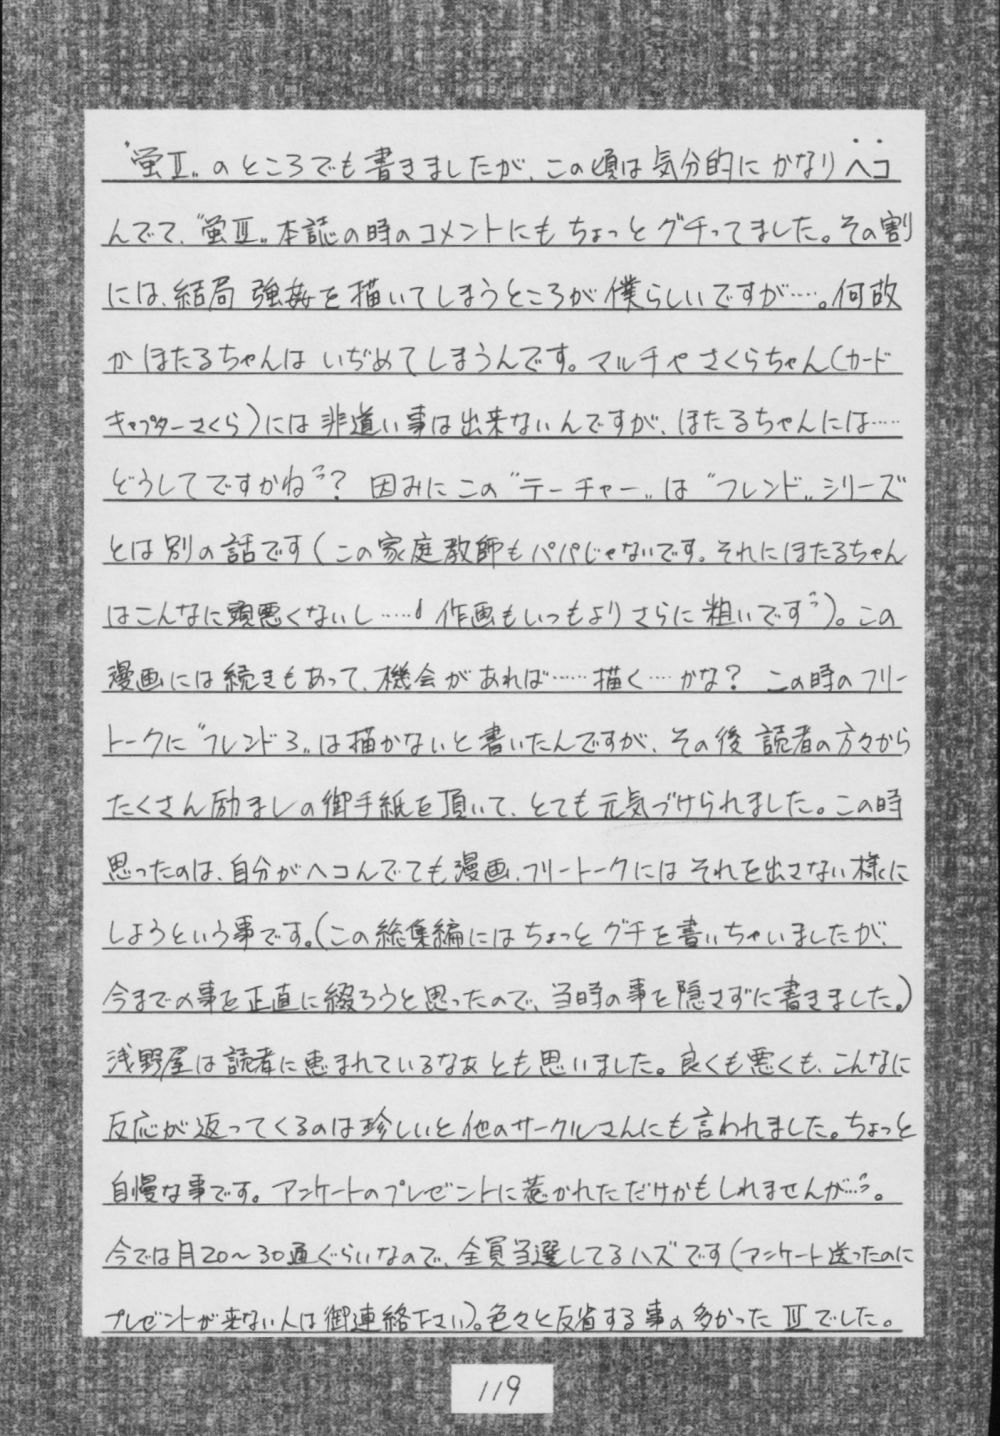 〝蛍Ⅱ〟のところでも書きましたが、この頃は気分的にかなりヘコ
んでて、〝蛍Ⅲ〟本誌の時のコメントにもちょっとグチってました。その割
には、結局 強姦を描いてしまうところが僕らしいですが……。何故
かほたるちゃんは いぢめてしまうんです。マルチやさくらちゃん(カード
キャプターさくら)には非道い事は出来ないんですが、ほたるちゃんには……
どうしてですかね? 因みにこの〝テーチャー〟は〝フレンド〟シリーズ
とは別の話です(この家庭教師もパパじゃないです。それにほたるちゃん
はこんなに頭悪くないし……! 作画もいつもよりさらに粗いです)。この
漫画には続きもあって、機会があれば……描く…かな? この時のフリー
トークに〝フレンド3〟は描かないと書いたんですが、その後 読者の方々から
たくさん励ましの御手紙を頂いて、とても元気づけられました。この時
思ったのは、自分がヘコんでても漫画、フリートークにはそれを出さない様に
しようという事です。(この総集編にはちょっとグチを書いちゃいましたが、
今までの事を正直に綴ろうと思ったので、当時の事を隠さずに書きました。)
浅野屋は読者に恵まれているなあとも思いました。良くも悪くも、こんなに
反応が返ってくるのは珍しいと他のサークルさんにも言われました。ちょっと
自慢な事です。アンケートのプレゼントに惹かれただけかもしれませんが…。
今では月20〜30通ぐらいなので、全員当選してるハズです(アンケート送ったのに
プレゼントが来ない人は御連絡下さい)。色々と反省する事の多かった Ⅲでした。
119